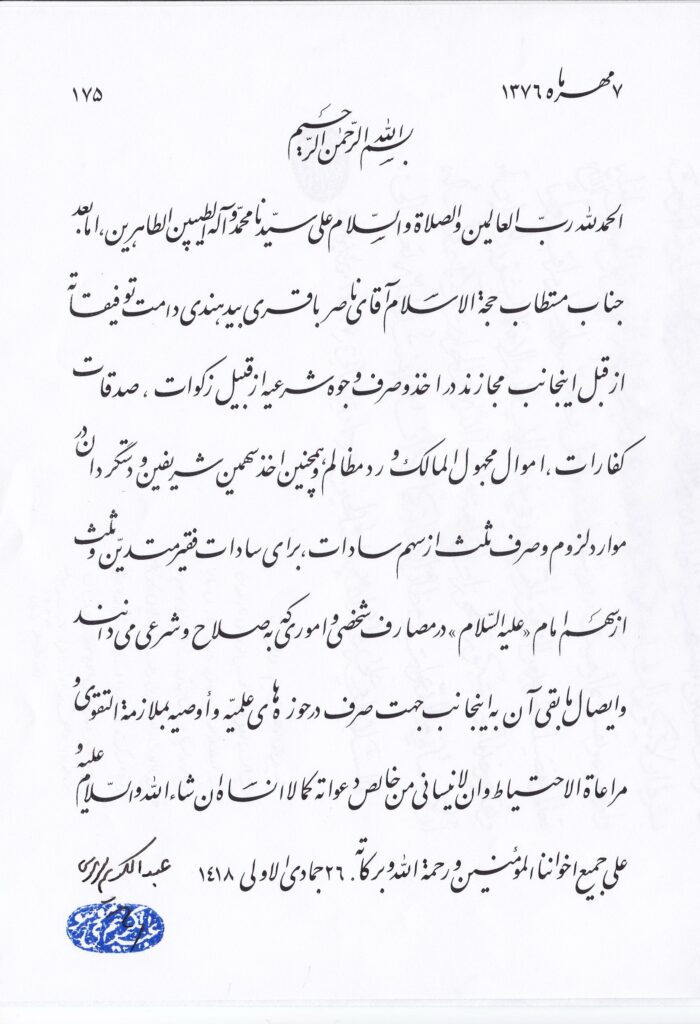 ۷ مهر ماه ۱۳۷۶
۱۷۵
بسم الله الرّحمٰن الرّحیم
الحمد لله ربّ العالمین والصلاة والسّلام علی سیّدنا محمّد وآله الطیبین الطاهرین، اما بعد
جناب مستطاب حجة الاسلام آقای ناصر باقری بیدهندی دامت توفیقاته
از قبل اینجانب مجازند در اخذ و صرف وجوه شرعیه از قبیل زکوات، صدقات
کفارات، اموال مجهول المالک و رد مظالم و همچنین اخذ سهمین شریفین و دستگردان در
موارد لزوم و صرف ثلث از سهم سادات، برای سادات فقیر متدیّن و ثلث
از سهم امام «علیه السّلام» در مصارف شخصی و اموری که به صلاح و شرعی می‌دانند
و ایصال مابقی آن به اینجانب جهت صرف در حوزه های علمیّه و أوصیه بملازمة التقوی و
مراعاة الاحتیاط وان لاینسانی من خالص دعواته کما لا انساه ان شاء الله والسّلام علیه و
علی جمیع اخواننا المؤمنین و رحمة الله و برکاته. ۲۶ جمادی الاولی ۱۴۱۸
عبدالکریم